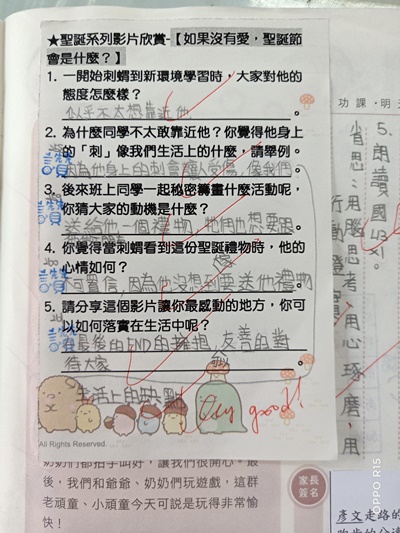 ★聖誕系列影片欣賞-【如果沒有愛,聖誕節
會是什麼?】
1. 一開始刺蝟到新環境學習時,大家對他的
態度怎麼樣?
似乎不太想靠近他。
2. 為什麼同學不太敢靠近他?你覺得他身上
的「刺」像我們生活上的什麼,請舉例。
因為他身上的刺會讓人受傷,像我們
3. 後來班上同學一起秘密籌畫什麼活動呢,
你猜大家的動機是什麼?
送給他一個禮物,他們也想要跟
4. 你覺得當刺蝟看到這份聖誕禮物時,他的
心情如何?
因為他沒想到要送他禮物
5. 請分享這個影片讓你最感動的地方,你可
以如何落實在生活中呢?
最後的END的擁抱,友善的對
待大家。
生活上的缺點
Very good!
讚
讚
讚
讚
All Rights Reserved.
功課‧明
5.朗讀國
省思:用腦思考、用心琢磨,用
奶奶們都拍手叫好,讓我們很開心。最
後,我們和爺爺、奶奶們玩遊戲,這群
老頑童、小頑童今天可說是玩得非常愉
快!
家長
簽名
彥文走路的
OPPO R15